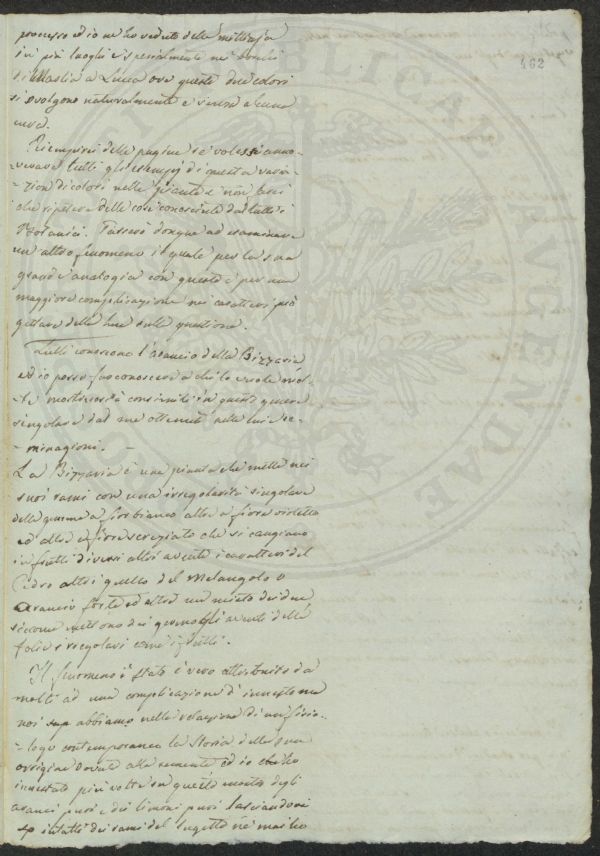 462
processo ed io ne ho vedute delle moltissime
in più luoghi e specialmente ne'
di Maslia a Lucca ove questi due colori
si svolgono naturalmente e senza alcuna
cura.
Riempirei delle pagine se volessi anno-
verare tutti gli esempj di questa varia-
-zion di colori nelle piante e non farei
che ripetere delle cose conosciute da tutti i
Botanici. Passerò dunque ad esaminare
un altro fenomeno il quale per la sua
grande analogia con questo e per una
maggiore complicazione nei caratteri può
gettare della luce sulla questione.
Tutti conoscono l'arancio della Bizzaria
ed io posso far conoscere a chi lo vuole mol-
-te mostruosità consimili in questo genere
singolare dal me ottenute nelle mie se-
-minagioni.
La Bizzaria è una pianta che mette nei
suoi rami con una irregolarità singolare
delle gemme a fior bianco altre a fiore violetto
ed altre a fiore screziato che si cangiano
in frutti diversi altri aventi i caratteri del
Cedro altri quello del Melangolo o
arancio forte ed altri un misto dei due
siccome mettono dei germogli aventi delle
foglie irregolari come i frutti.
Il fenomeno è stato è vero attribuito da
molti ad una complicazione d'innesto ma
noi abbiamo nella relazione di un fisio-
-logo contemporaneo la Storia della sua
origine dovuta alla semente ed io che ho
innestato più volte in questo modo degli
aranci puri e dei limoni puri lasciandovi
intatti dei rami del sugetto nè mai ho